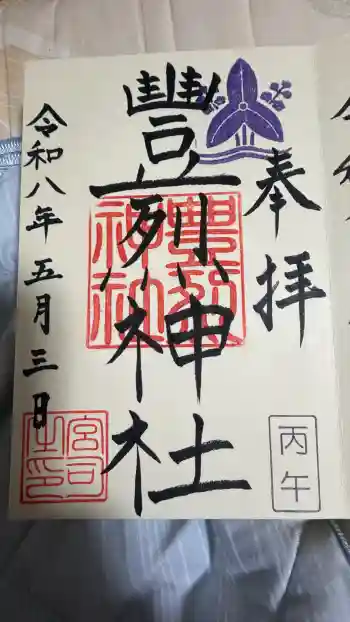 奉拝
豐烈神社
豐烈
神社
令和八年五月三日
宮司
之印
丙午